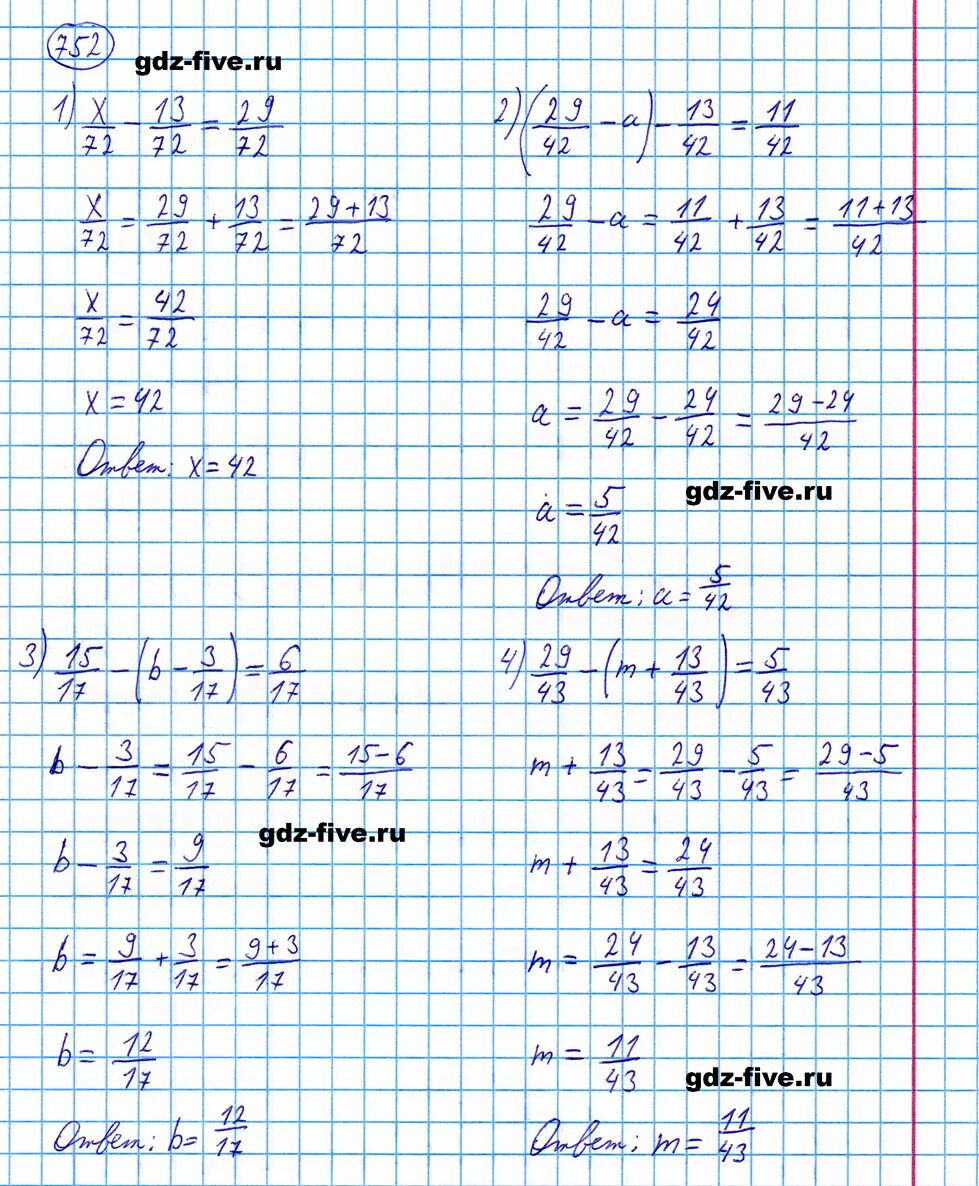 752
gdz-five.ru
1) x/72 − 13/72 = 29/72
x/72 = 29/72 + 13/72 = (29+13)/72
x/72 = 42/72
x = 42
Ответ: x = 42
2) (29/42 − a) − 13/42 = 11/42
29/42 − a = 11/42 + 13/42 = (11+13)/42
29/42 − a = 24/42
a = 29/42 − 24/42 = (29−24)/42
gdz-five.ru
a = 5/42
Ответ: a = 5/42
3) 15/17 − (b − 3/17) = 6/17
b − 3/17 = 15/17 − 6/17 = (15−6)/17
gdz-five.ru
b − 3/17 = 9/17
b = 9/17 + 3/17 = (9+3)/17
b = 12/17
Ответ: b = 12/17
4) 29/43 − (m + 13/43) = 5/43
m + 13/43 = 29/43 − 5/43 = (29−5)/43
m + 13/43 = 24/43
m = 24/43 − 13/43 = (24−13)/43
m = 11/43
gdz-five.ru
Ответ: m = 11/43